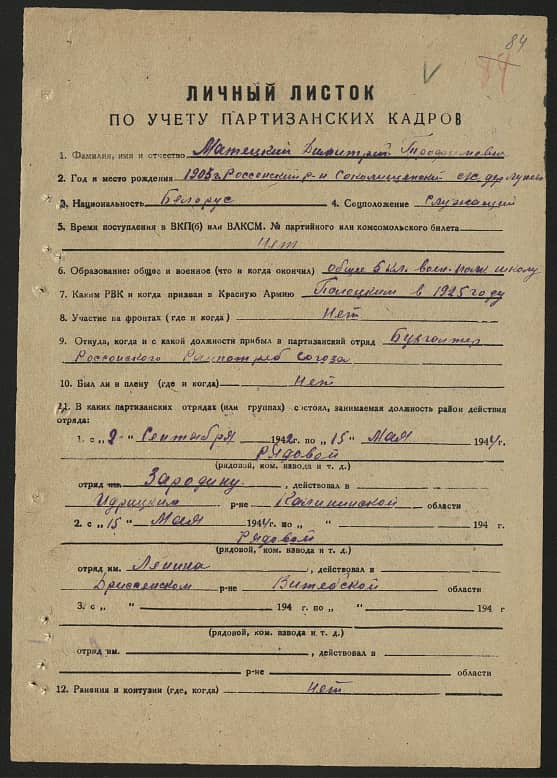 84
84
ЛИЧНЫЙ ЛИСТОК
ПО УЧЕТУ ПАРТИЗАНСКИХ КАДРОВ
1. Фамилия, имя и отчество Матецкий Димитрий
2. Год и место рождения 1903 г. Россонский р-н Соколищенский с/с дер.
3. Национальность Белорус 4. Соцположение Служащий
5. Время поступления в ВКП(б) или ВЛКСМ. № партийного или комсомольского билета
Нет
6. Образование: общее и военное (что и когда окончил) общее 5 кл. школу
7. Каким РВК и когда призван в Красную Армию Полоцким в 1925 году
8. Участие на фронтах (где и когда) Нет
9. Откуда, когда и с какой должности прибыл в партизанский отряд Бухгалтер
Россонского Райпотреб союза
10. Был ли в плену (где и когда) Нет
11. В каких партизанских отрядах (или группах) состоял, занимаемая должность район действия
отряда:
1. с „2“ Сентября 1942 г. по „15“ Мая 1944 г.
Рядовой
(рядовой, ком. взвода и т. д.)
отряд им. , действовал в
Идрицким р-не Калининской области
2. с „15“ Мая 1944 г. по „ “ 194 г.
Рядовой
(рядовой, ком. взвода и т. д.)
отряд им. Ленина , действовал в
Дриссенском р-не Витебской области
3. с „ “ 194 г. по „ “ 194 г
(рядовой, ком. взвода и т. д.)
отряд им. , действовал в
р-не области
12. Ранения и контузии (где, когда) Нет